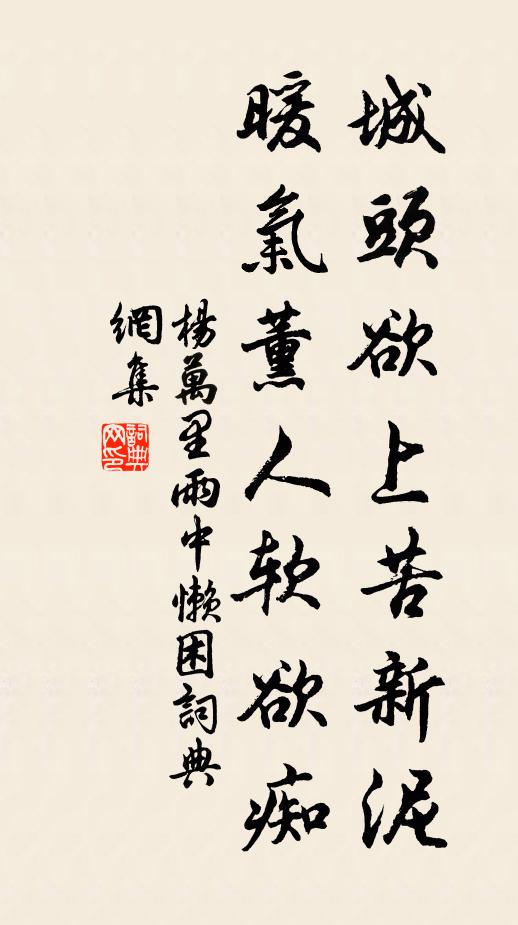 城頭欲上苦新泥
暖氣薰人软欲痴
楊萬里雨中懒困詞典
網集
詞典
网印